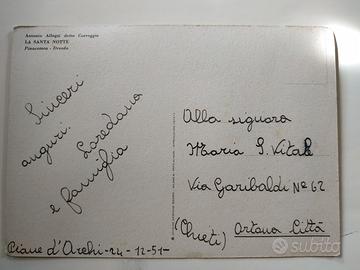 Antonio Allegri detto Correggio
LA SANTA NOTTE
Pinacoteca - Dresda
Sinceri
auguri.
Loredana
e famiglia
Piane d'Archi - 24 - 12 - 51 -
Alla signora
Maria S. Vitale
Via Garibaldi Nº 62
(Chieti) Ortona Città
subito